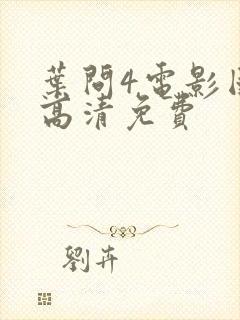 葉問4電影
高清免費
劉卉